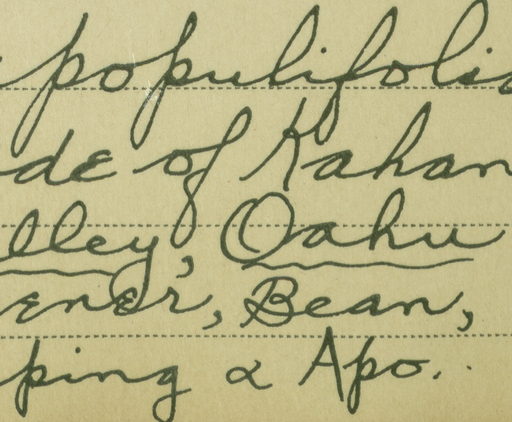 populifolia
de of Kahan
lley, Oahu
ener, Bean,
ping & Apo.